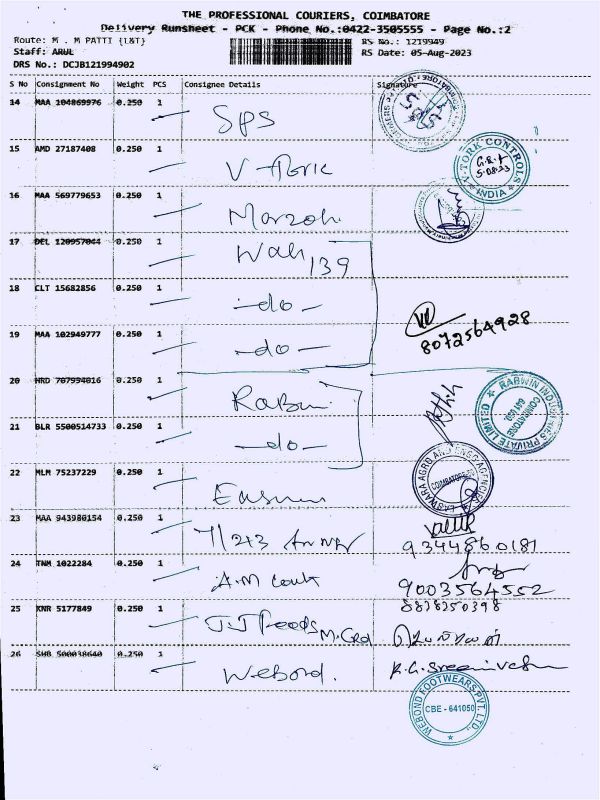 THE PROFESSIONAL COURIERS, COIMBATORE
Delivery Runsheet - PCK - Phone No.:0422-3505555 - Page No.:2
Route: M . M PATTI {L&T} RS No.: 1219949
Staff: ARUL RS Date: 05-Aug-2023
DRS No.: DCJB121994902
S No Consignment No Weight PCS Consignee Details Signature
14 MAA 104869976 0.250 1 SPS
15 AMD 27187408 0.250 1 V-TORK CONTROLS INDIA 5-08-23
16 MAA 569779653 0.250 1
17 DEL 120957044 0.250 1 139
18 CLT 15682856 0.250 1 -do-
8072564928
19 MAA 102949777 0.250 1 -do-
20 HRD 707994016 0.250 1 RABWIN INDUSTRIES PRIVATE LIMITED COIMBATORE
21 BLR 5500514733 0.250 1 -do-
22 MLM 75237229 0.250 1 COIMBATORE
23 MAA 943980154 0.250 1 9344860181
24 TNM 1022284 0.250 1 A.M 9003564552
8838250398
25 KNR 5177849 0.250 1 J.J Foods
26 SHB 500038640 0.250 1 Webond.
WEBOND FOOTWEARS PVT. LTD.,
CBE - 641050